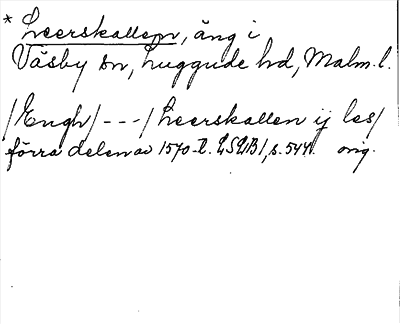 * Leerskallen, äng i
Väsby sn, Luggude hd, Malm. l.
/Engh/ --- / Leerskallen ij les/
förra delen av 1570-t. LSLB1, s. 544. orig.